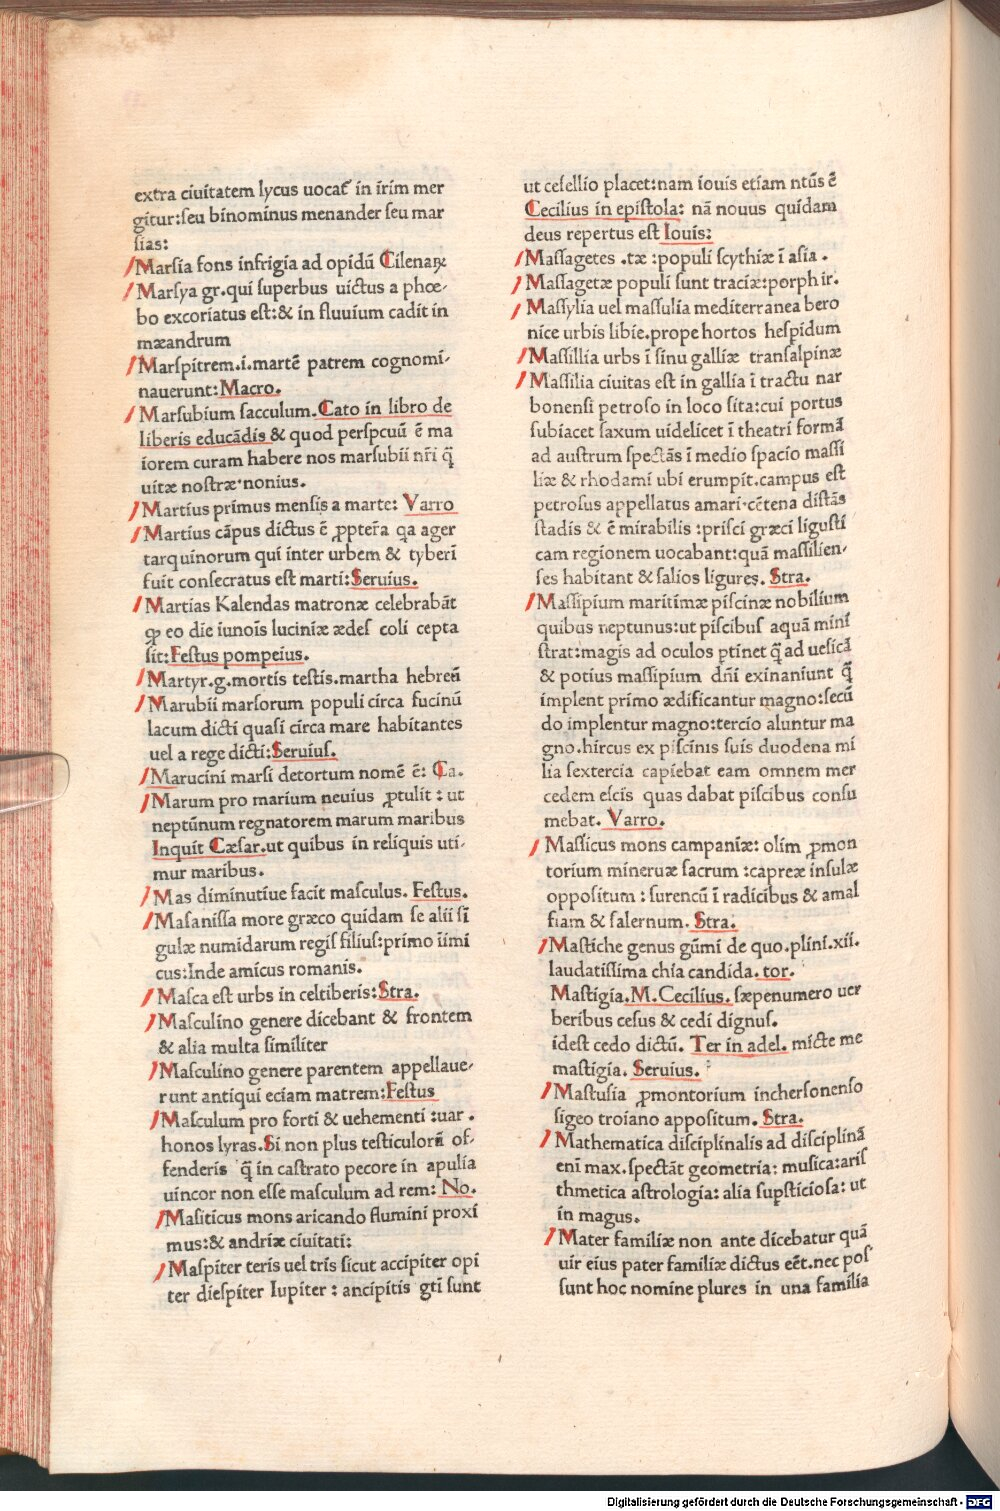 extra ciuitatem lycus uocat᷑ in irim mer
gitur:ſeu binominus menander ſeu mar
ſias:
Marſia fons infrigia ad opidū Cilenaꝝ
Marſya gr.qui ſuperbus uictus a phœ⸗
bo excoriatus eſt:& in fluuium cadit in
mæandrum
Marſpitrem.i.martē patrem cognomi⸗
nauerunt:Macro.
Marſubium ſacculum.Cato in libro de
liberis educādis & quod perſpcuū ē ma
iorem curam habere nos marſubii nr̄i q̄
uitæ noſtræ·nonius.
Martius primus menſis a marte: Varro
Martius cāpus dictus ē ꝓpter̄a qa ager
tarquinorum qui inter urbem & tyberi
fuit conſecratus eſt marti:Seruius.
Martias Kalendas matronæ celebrabāt
ꝙ eo die iunoīs luciniæ ædeſ coli cepta
ſit:Feſtus pompeius.
Martyr.g.mortis teſtis.martha hebreū
Marubii marſorum populi circa fucinū
lacum dicti quaſi circa mare habitantes
uel a rege dicti:Seruiuſ.
Marucini marſi detortum nomē ē: Ca.
Marum pro marium neuius ꝓtulit : ut
neptūnum regnatorem marum maribus
Inquit Cæſar.ut quibus in reliquis uti⸗
mur maribus.
Mas diminutiue facit maſculus. Feſtus.
Maſaniſſa more græco quidam ſe alii ſi
gulæ numidarum regiſ filiuſ:primo iīmi
cus:Inde amicus romanis.
Maſca eſt urbs in celtiberis:Stra.
Maſculino genere dicebant & frontem
& alia multa ſimiliter
Maſculino genere parentem appellaue⸗
runt antiqui eciam matrem:Feſtus
Maſculum pro forti & uehementi :uar .
honos lyras.Si non plus teſticulorū of⸗
fenderis q̄ in caſtrato pecore in apulia
uincor non eſſe maſculum ad rem: No.
Maſiticus mons aricando flumini proxi
mus:& andriæ ciuitati:
Maſpiter teris uel tris ſicut accipiter opi
ter dieſpiter Iupiter : ancipitis gti ſunt
ut ceſellio placet:nam iouis etiam ntūs ē
Cecilius in epiſtola: nā nouus quidam
deus repertus eſt Iouis:
Maſſagetes .tæ :populi ſcythiæ ī aſia .
Maſſagetæ populi ſunt traciæ:porphir.
Maſſylia uel maſſulia mediterranea bero
nice urbis libie.prope hortos heſpidum
Maſſillia urbs ī ſinu galliæ tranſalpinæ
Maſſilia ciuitas eſt in gallia ī tractu nar
bonenſi petroſo in loco ſita:cui portus
ſubiacet ſaxum uidelicet ī theatri formā
ad auſtrum ſpectās ī medio ſpacio maſſi
liæ & rhodami ubi erumpit.campus eſt
petroſus appellatus amari·cētena diſtās
ſtadis & ē mirabilis :priſci græci liguſti
cam regionem uocabant:quā maſſilien⸗
ſes habitant & ſalios ligures. Stra.
Maſſipium maritimæ piſcinæ nobilium
quibus neptunus:ut piſcibuſ aquā miniſ
ſtrat:magis ad oculos ꝑtinet q̄ ad ueſicā
& potius maſſipium dn̄i exinaniunt q̄
implent primo ædificantur magno:ſecū
do implentur magno:tercio aluntur ma
gno.hircus ex piſcinis ſuis duodena mi
lia ſextercia capiebat eam omnem mer
cedem eſcis quas dabat piſcibus conſu
mebat. Varro.
Maſſicus mons campaniæ: olim ꝓmon
torium mineruæ ſacrum :capreæ inſulæ
oppoſitum : ſurencū ī radicibus & amal
fiam & ſalernum. Stra.
Maſtiche genus gūmi de quo.plini.xii.
laudatiſſima chia candida. tor.
Maſtigia.M.Cecilius. ſæpenumero uer
beribus ceſus & cedi dignuſ.
ideſt cedo dictū. Ter in adel. micte me
maſtigia. Seruius.
Maſtuſia ꝓmontorium incherſonenſo
ſigeo troiano appoſitum. Stra.
Mathematica diſciplinalis ad diſciplinā
eni max.ſpectāt geometria: muſica:ariſ
thmetica aſtrologia: alia ſuꝑſticioſa: ut
in magus.
Mater familiæ non ante dicebatur quā
uir eius pater familiæ dictus eēt.nec poſ
ſunt hoc nomine plures in una familia
Digitalisierung gefördert durch die Deutsche Forschungsgemeinschaft - DFG